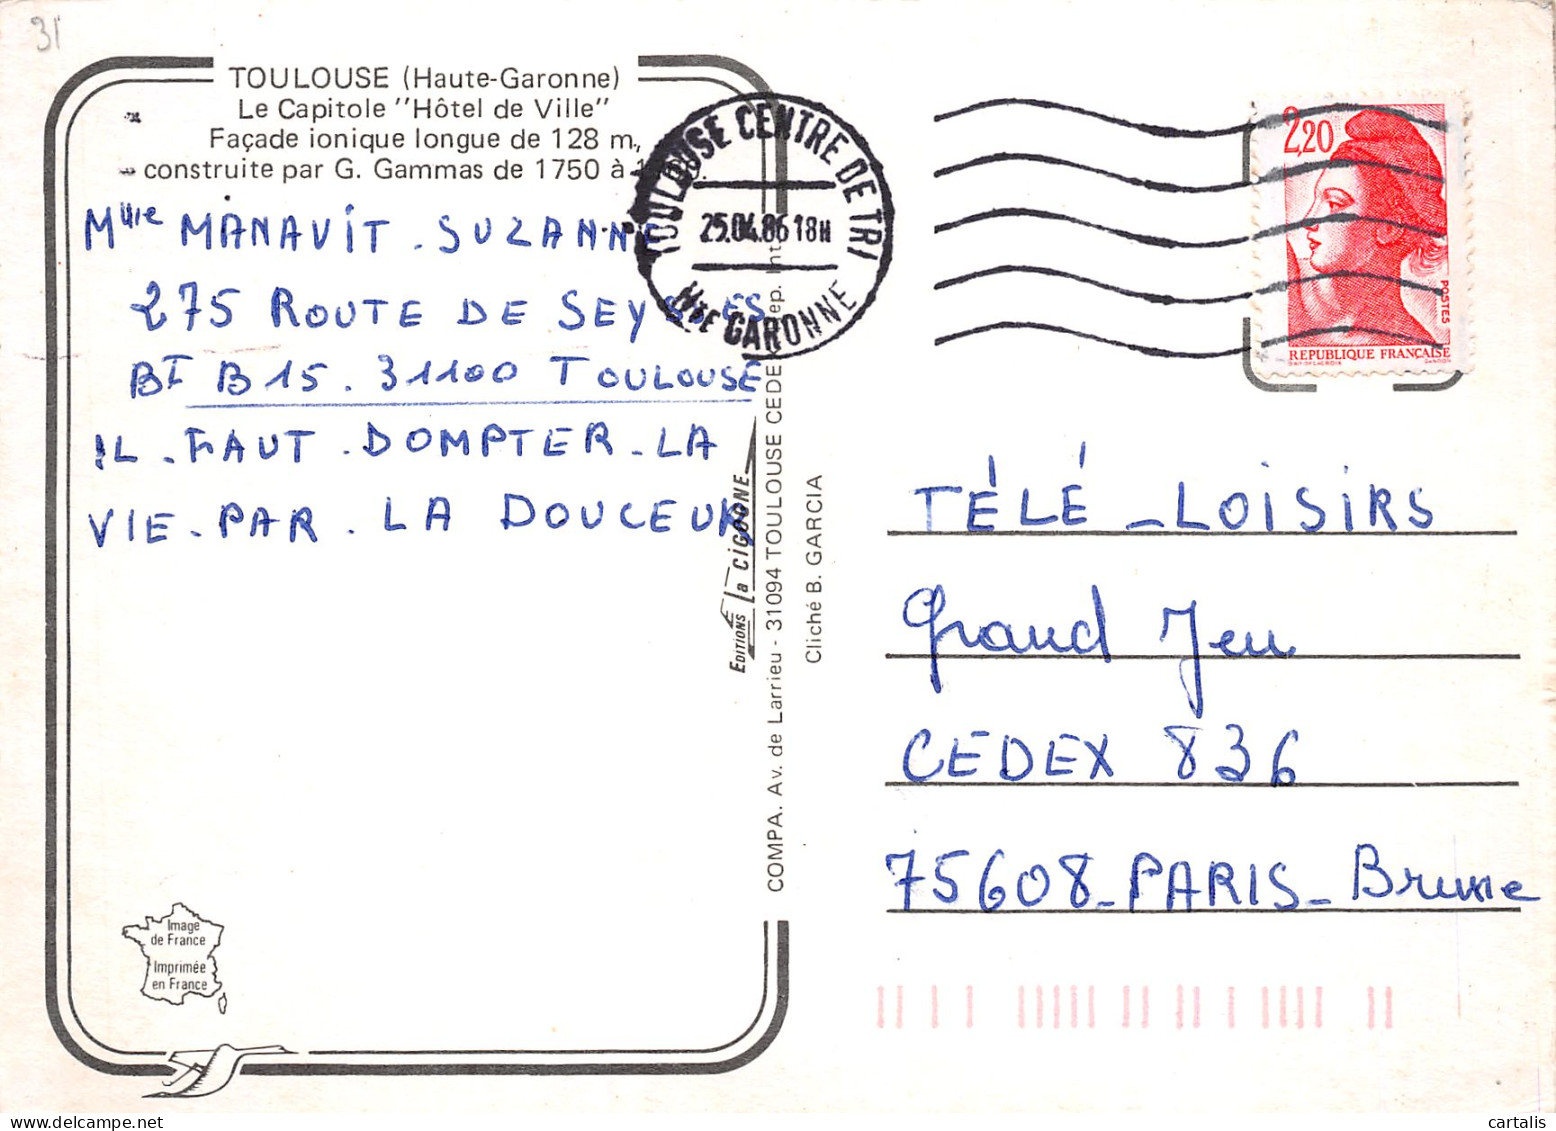 31
TOULOUSE (Haute-Garonne)
Le Capitole "Hôtel de Ville"
Façade ionique longue de 128 m,
construite par G. Gammas de 1750 à
MANAVIT . SUZANNE
275 ROUTE DE SEYSSES
BT B15 . 31100 TOULOUSE
IL . FAUT . DOMPTER . LA
VIE . PAR . LA DOUCEUR
TOULOUSE CENTRE DE TRI
25.04.86 18H
Hte GARONNE
2,20
POSTES
REPUBLIQUE FRANÇAISE
EDITIONS La CIGOGNE
COMPA. Av. de Larrieu - 31094 TOULOUSE CEDEX
Cliché B. GARCIA
TÉLÉ _ LOISIRS
Grand Jeu
CEDEX 836
75608 _ PARIS _ Brune
Image
de France
Imprimée
en France
cartalis